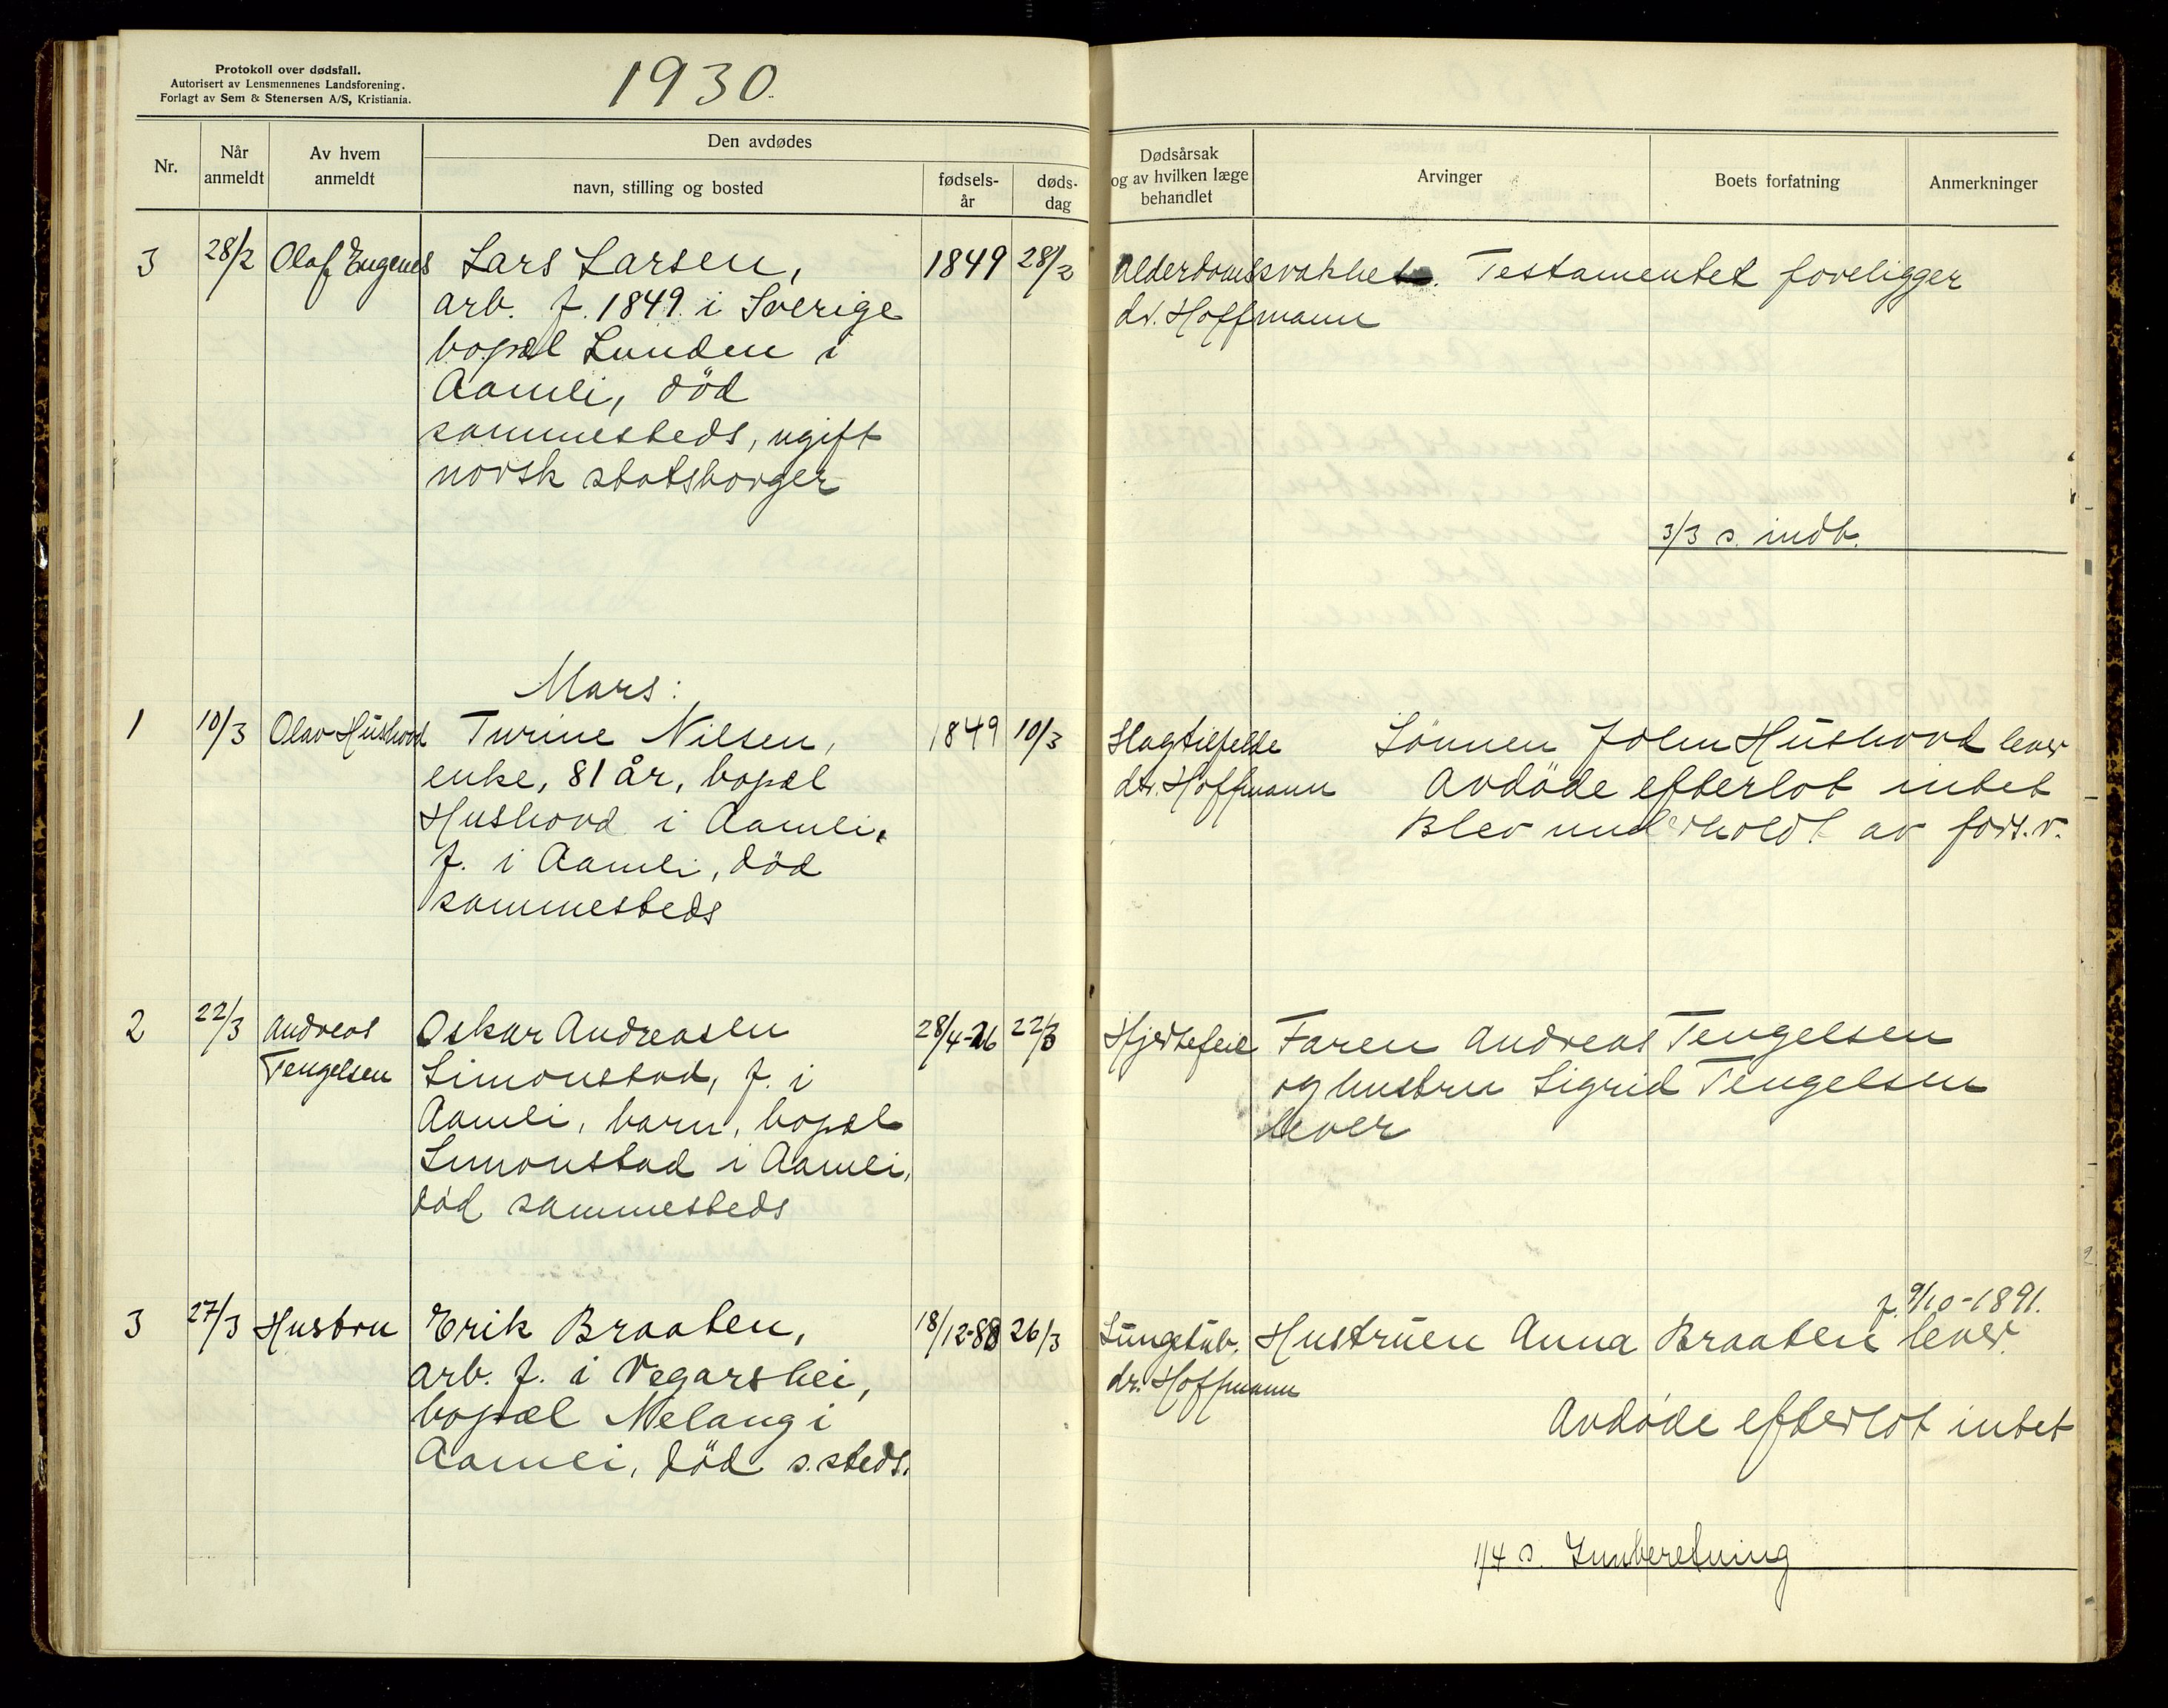 Protokoll over dødsfall.
Autorisert av Lensmennenes Landsforening.
Forlagt av Sem & Stenersen A/S, Kristiania.
1930.
Nr.
Når anmeldt
Av hvem anmeldt
Den avdødes
navn, stilling og bosted
fødsels-år
døds-dag
Dødsårsak
og av hvilken læge
behandlet
Arvinger
Boets forfatning
Anmerkninger
3 28/2 Olaf Engenes Lars Larsen, 1849 28/2 Alderdomssvakhet. Testamentet foreligger
arb. f. 1849 i Sverige dr. Hoffmann
bopæl Lunden i
Aamli, död
sammesteds, ugift
norsk statsborger
3/3 s. indb.
Mars:
1 10/3 Olav Hushovd Turine Nilsen, 1849 10/3 Slagtilfelde Sönnen John Hushovd lever
enke, 81 år, bopæl dr. Hoffmann Avdöde efterlot intet
Hushovd i Aamli. Blev underholdt av fors.v.
f. i Aamli, död
sammesteds
2 22/3 Andreas Oskar Andreasen 28/4-26 22/3 Hjertefeil Faren Andreas Tengelsen
Tengelsen Simonstad, f. i og hustru Sigrid Tengelsen
Aamli, barn, bopæl lever
Simonstad i Aamli,
död sammesteds
f. 9/10-1891.
3 27/3 Hustru Erik Braaten, 18/12-88 26/3 Lungetub. Hustruen Anna Braaten lever.
arb. f. i Vegarshei, dr. Hoffmann
bopæl Nelaug i Avdöde efterlot intet
Aamli, död s.steds.
1/4 s. Innberetning